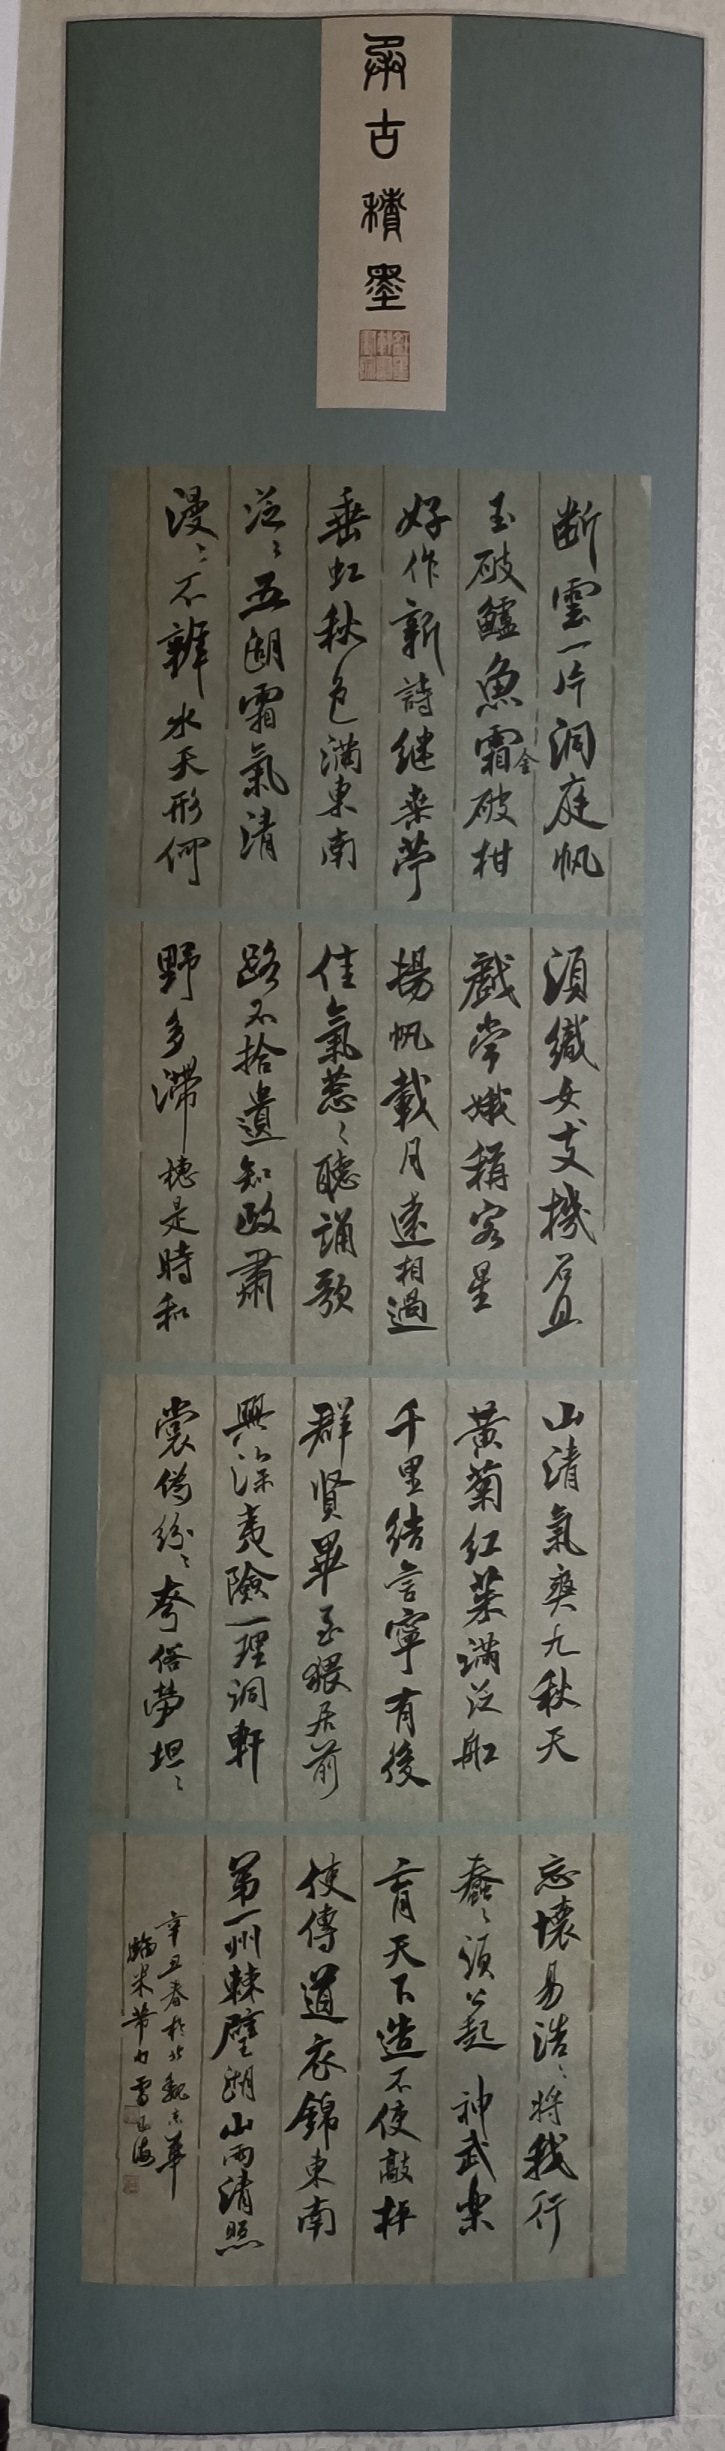 古積墨
断雲一片洞庭帆
玉破鱸魚霜破柑
金
好作新詩継桑苧
垂虹秋色満東南
泛〻五湖霜氣清
漫〻不辨水天形何
須織女支機石且
戲常娥稱客星
揚帆載月遠相過
佳氣蔥〻聽誦歌
路不拾遺知政肅
野多滯穗是時和
山清氣爽九秋天
黃菊紅茱満泛船
千里結言寧有後
群賢畢至猥居前
興深夷險一理洞軒
裳偽紛〻夸俗勞坦〻
忘懷易浩〻將我行
蠢〻須公起神武樂
育天下造不使敲枰
使傳道衣錦東南
第一州棘璧湖山兩清照
辛丑春於北魏
臨米芾